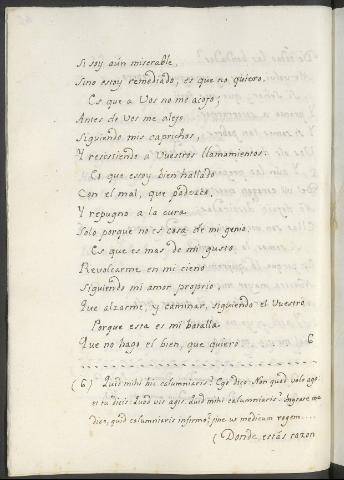 Si soy aún miserable,
Sino estoy remediado, es que no quiero.
Es que a Vos no me acojo;
Antes de Vos me alejo
Siguiendo mis caprichos,
Y resistiendo a Vuestros llamamientos.
Es que estoy bien hallado
Con el mal, que padezco,
Y repugno a la cura
Solo porque no es cosa de mi genio.
Es que es mas de mi gusto
Revolcarme en mi cieno
Siguiendo mi amor proprio,
Que alzarme, y caminar, siguiendo el Vuestro.
Porque esta es mi batalla
Que no hago el bien, que quiero 6
(6) Quid mihi hic calumniaris? Ego dico: Non quod volo ago:
et tu dicis: Quod vis agis. Quid mihi calumniaris? Ingrate me
dice, quid calumniaris infirmo? sine ut medicum rogem....
(Donde estás razon